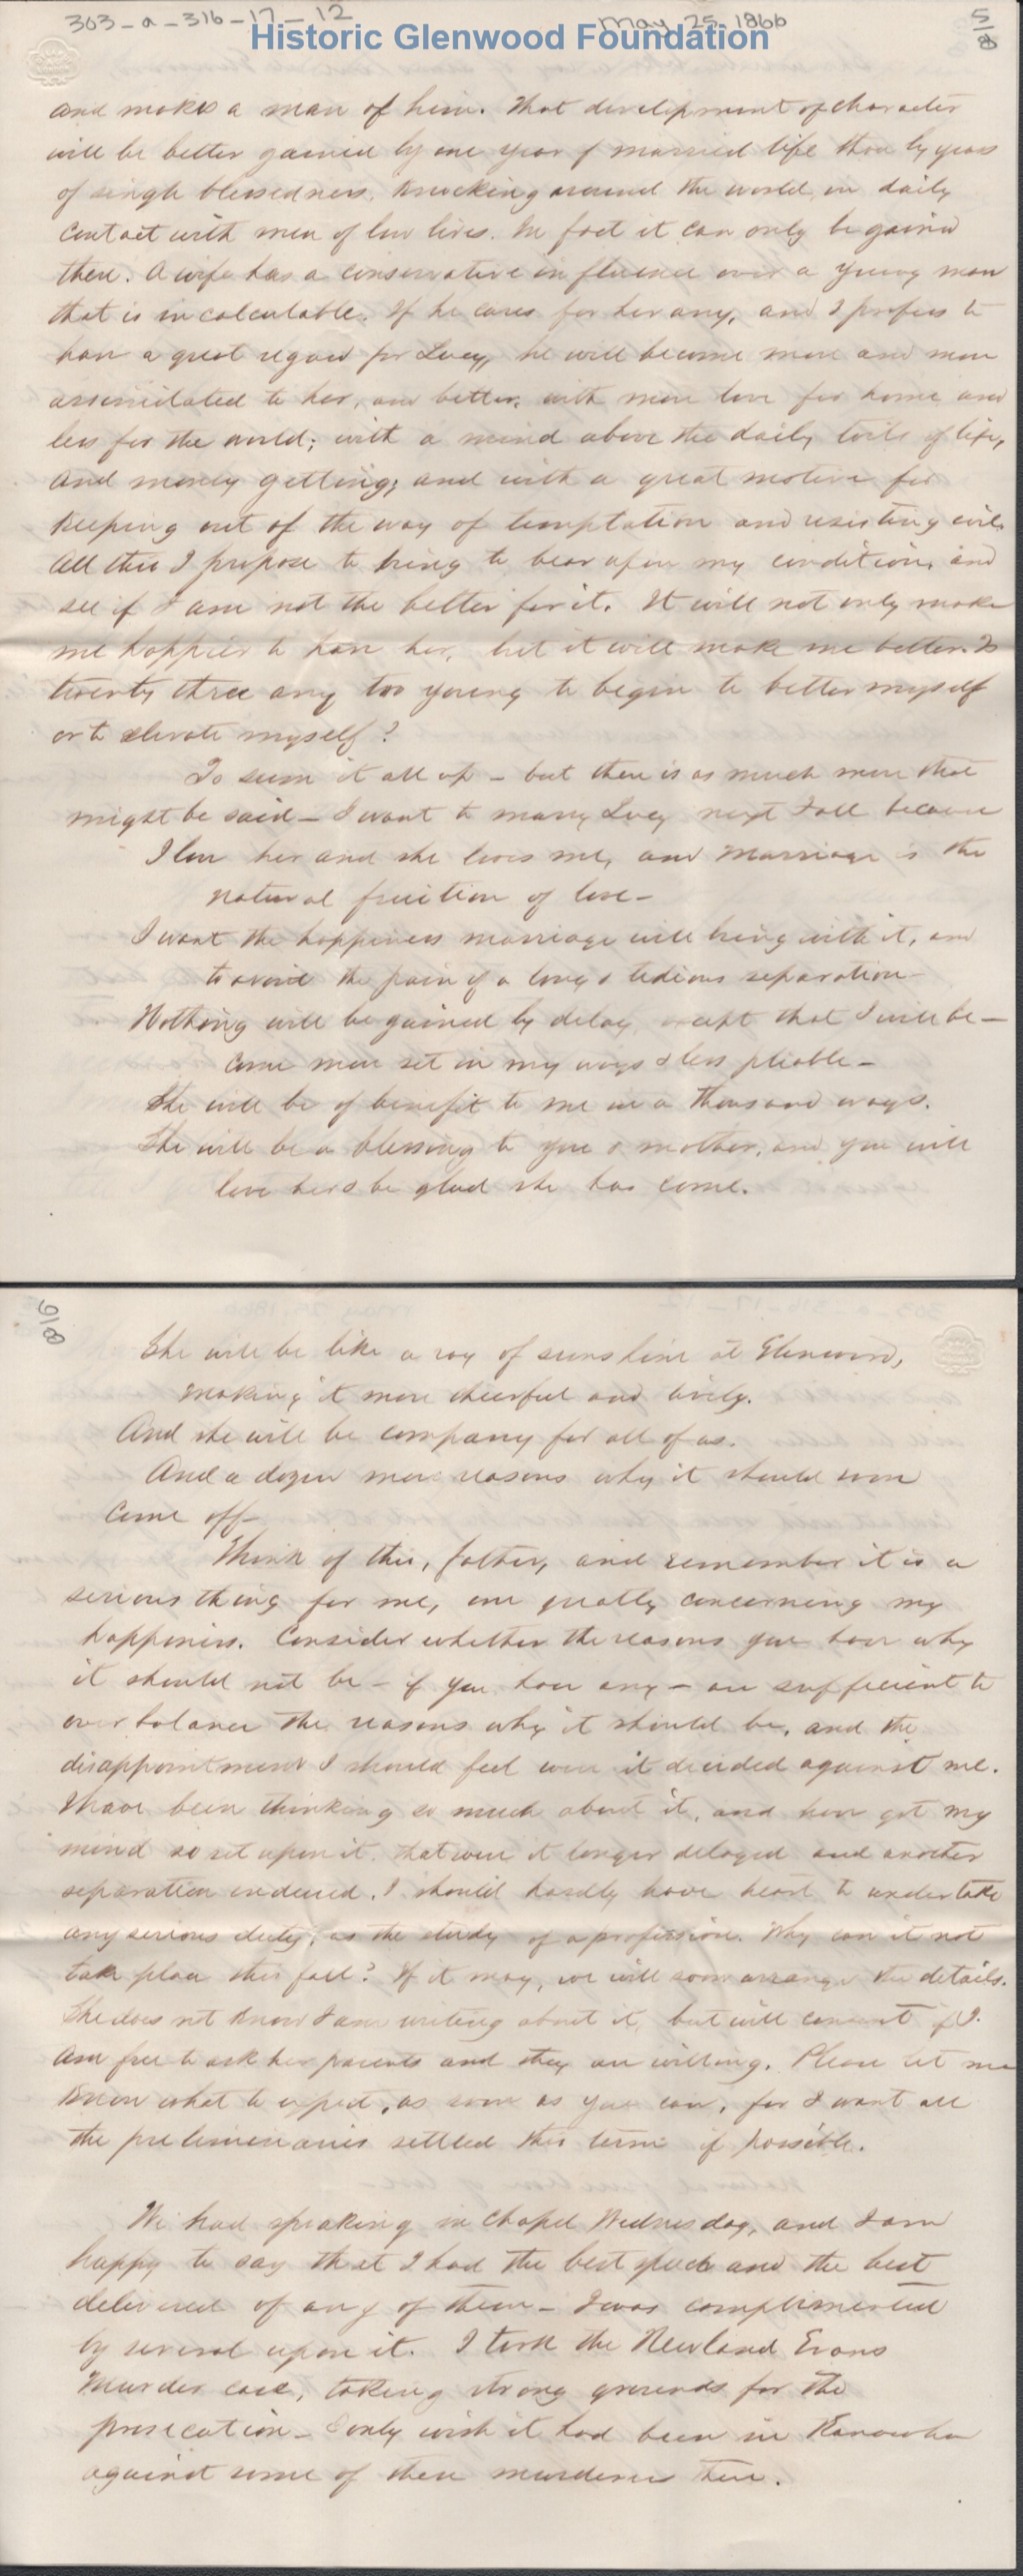 303-a-316-17-12
May 25, 1866
5/8
Historic Glenwood Foundation
and makes a man of him. That development of character
will be better gained by one year of married life than by years
of single blessedness, knocking around the world in daily
contact with men of low lives. In fact it can only be gained
then. A wife has a conservative influence over a young man
that is incalculable. If he cares for her any, and I profess to
have a great regard for Lucy, he will become more and more
assimilated to her, and better, with more love for home and
less for the world; with a mind above the daily toils of life,
and money getting; and with a great motive for
keeping out of the way of temptation and resisting evil.
All this I propose to bring to bear upon my condition, and
see if I am not the better for it. It will not only make
me happier to have her, but it will make me better. Is
twenty three any too young to begin to better myself
or to elevate myself?
To sum it all up - but there is as much more that
might be said - I want to marry Lucy next Fall because
I love her and she loves me, and marriage is the
natural fruition of love -
I want the happiness marriage will bring with it, and
to avoid the pain of a long & tedious separation -
Nothing will be gained by delay, except that I will be-
come more set in my ways & less pliable -
She will be of benefit to me in a thousand ways.
She will be a blessing to you & mother, and you will
love her & be glad she has come.
6/8
She will be like a ray of sunshine at Glenwood,
making it more cheerful and lively.
And she will be company for all of us.
And a dozen more reasons why it should soon
come off -
Think of this, father, and remember it is a
serious thing for me, one greatly concerning my
happiness. Consider whether the reasons you have why
it should not be - if you have any - are sufficient to
overbalance the reasons why it should be, and the
disappointment I should feel were it decided against me.
I have been thinking so much about it, and have got my
mind so set upon it, that were it longer delayed and another
separation endured, I should hardly have heart to undertake
any serious duty, as the study of a profession. Why can it not
take place this fall? If it may, we will soon arrange the details.
She does not know I am writing about it, but will consent if I
am free to ask her parents and they are willing. Please let me
know what to expect, as soon as you can, for I want all
the preliminaries settled this term if possible.
We had speaking in Chapel Wednesday, and I am
happy to say that I had the best speech and the best
delivered of any of them - I was complimented
by several upon it. I took the Newland Evans
Murder case, taking strong grounds for the
prosecution - I only wish it had been in Kanawha
against some of these murderers there.